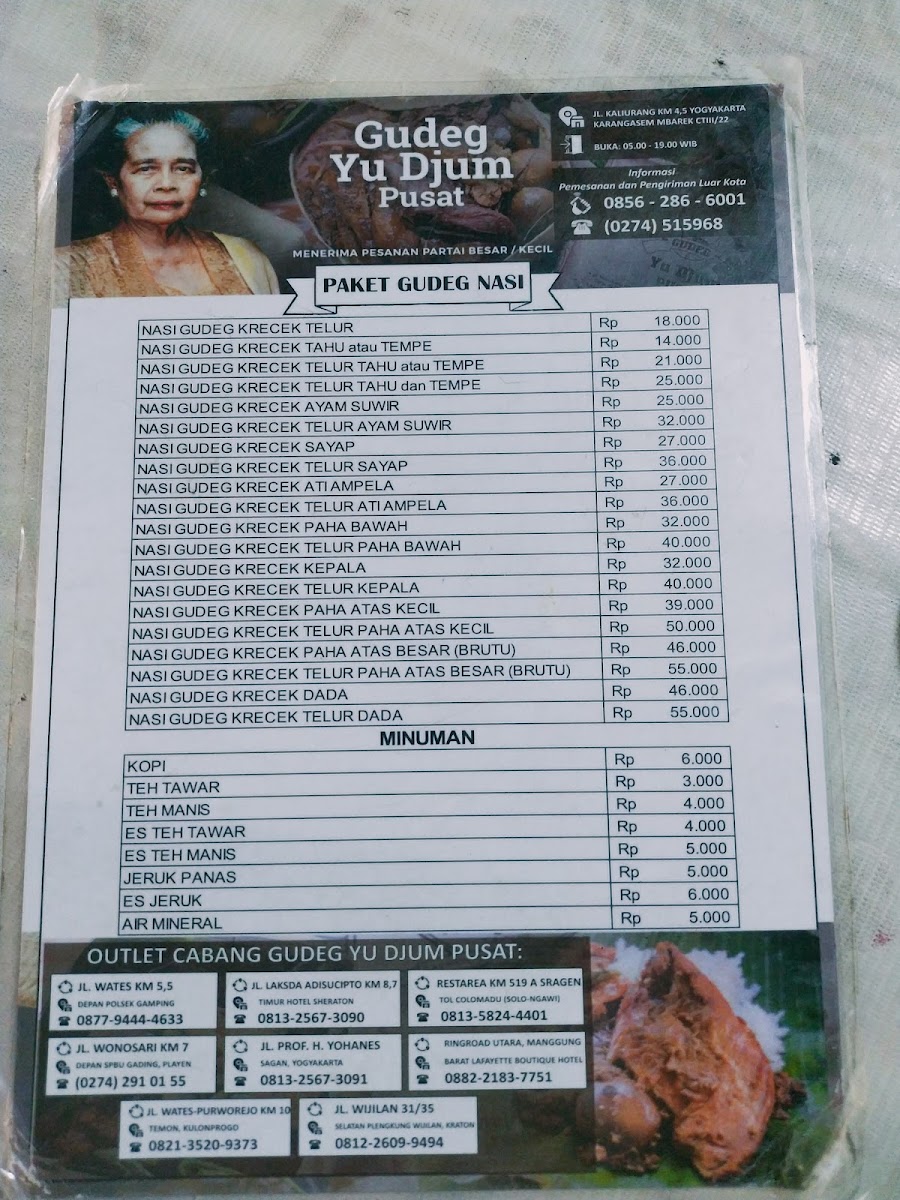 Gudeg
Yu Djum
Pusat
MENERIMA PESANAN PARTAI BESAR / KECIL
JL. KALIURANG KM 4,5 YOGYAKARTA
KARANGASEM MBAREK CTIII/22
BUKA: 05.00 - 19.00 WIB
Informasi
Pemesanan dan Pengiriman Luar Kota
0856 - 286 - 6001
(0274) 515968
PAKET GUDEG NASI
NASI GUDEG KRECEK TELUR Rp 18.000
NASI GUDEG KRECEK TAHU atau TEMPE Rp 14.000
NASI GUDEG KRECEK TELUR TAHU atau TEMPE Rp 21.000
NASI GUDEG KRECEK TELUR TAHU dan TEMPE Rp 25.000
NASI GUDEG KRECEK AYAM SUWIR Rp 25.000
NASI GUDEG KRECEK TELUR AYAM SUWIR Rp 32.000
NASI GUDEG KRECEK SAYAP Rp 27.000
NASI GUDEG KRECEK TELUR SAYAP Rp 36.000
NASI GUDEG KRECEK ATI AMPELA Rp 27.000
NASI GUDEG KRECEK TELUR ATI AMPELA Rp 36.000
NASI GUDEG KRECEK PAHA BAWAH Rp 32.000
NASI GUDEG KRECEK TELUR PAHA BAWAH Rp 40.000
NASI GUDEG KRECEK KEPALA Rp 32.000
NASI GUDEG KRECEK TELUR KEPALA Rp 40.000
NASI GUDEG KRECEK PAHA ATAS KECIL Rp 39.000
NASI GUDEG KRECEK TELUR PAHA ATAS KECIL Rp 50.000
NASI GUDEG KRECEK PAHA ATAS BESAR (BRUTU) Rp 46.000
NASI GUDEG KRECEK TELUR PAHA ATAS BESAR (BRUTU) Rp 55.000
NASI GUDEG KRECEK DADA Rp 46.000
NASI GUDEG KRECEK TELUR DADA Rp 55.000
MINUMAN
KOPI Rp 6.000
TEH TAWAR Rp 3.000
TEH MANIS Rp 4.000
ES TEH TAWAR Rp 4.000
ES TEH MANIS Rp 5.000
JERUK PANAS Rp 5.000
ES JERUK Rp 6.000
AIR MINERAL Rp 5.000
OUTLET CABANG GUDEG YU DJUM PUSAT:
JL. WATES KM 5,5
DEPAN POLSEK GAMPING
0877-9444-4633
JL. LAKSDA ADISUCIPTO KM 8,7
TIMUR HOTEL SHERATON
0813-2567-3090
RESTAREA KM 519 A SRAGEN
TOL COLOMADU (SOLO-NGAWI)
0813-5824-4401
JL. WONOSARI KM 7
DEPAN SPBU GADING, PLAYEN
(0274) 291 01 55
JL. PROF. H. YOHANES
SAGAN, YOGYAKARTA
0813-2567-3091
RINGROAD UTARA, MANGGUNG
BARAT LAFAYETTE BOUTIQUE HOTEL
0882-2183-7751
JL. WATES-PURWOREJO KM 10
TEMON, KULONPROGO
0821-3520-9373
JL. WIJILAN 31/35
SELATAN PLENGKUNG WIJILAN, KRATON
0812-2609-9494